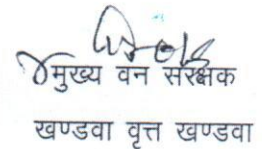 मुख्य वन संरक्षक
खण्डवा वृत्त खण्डवा